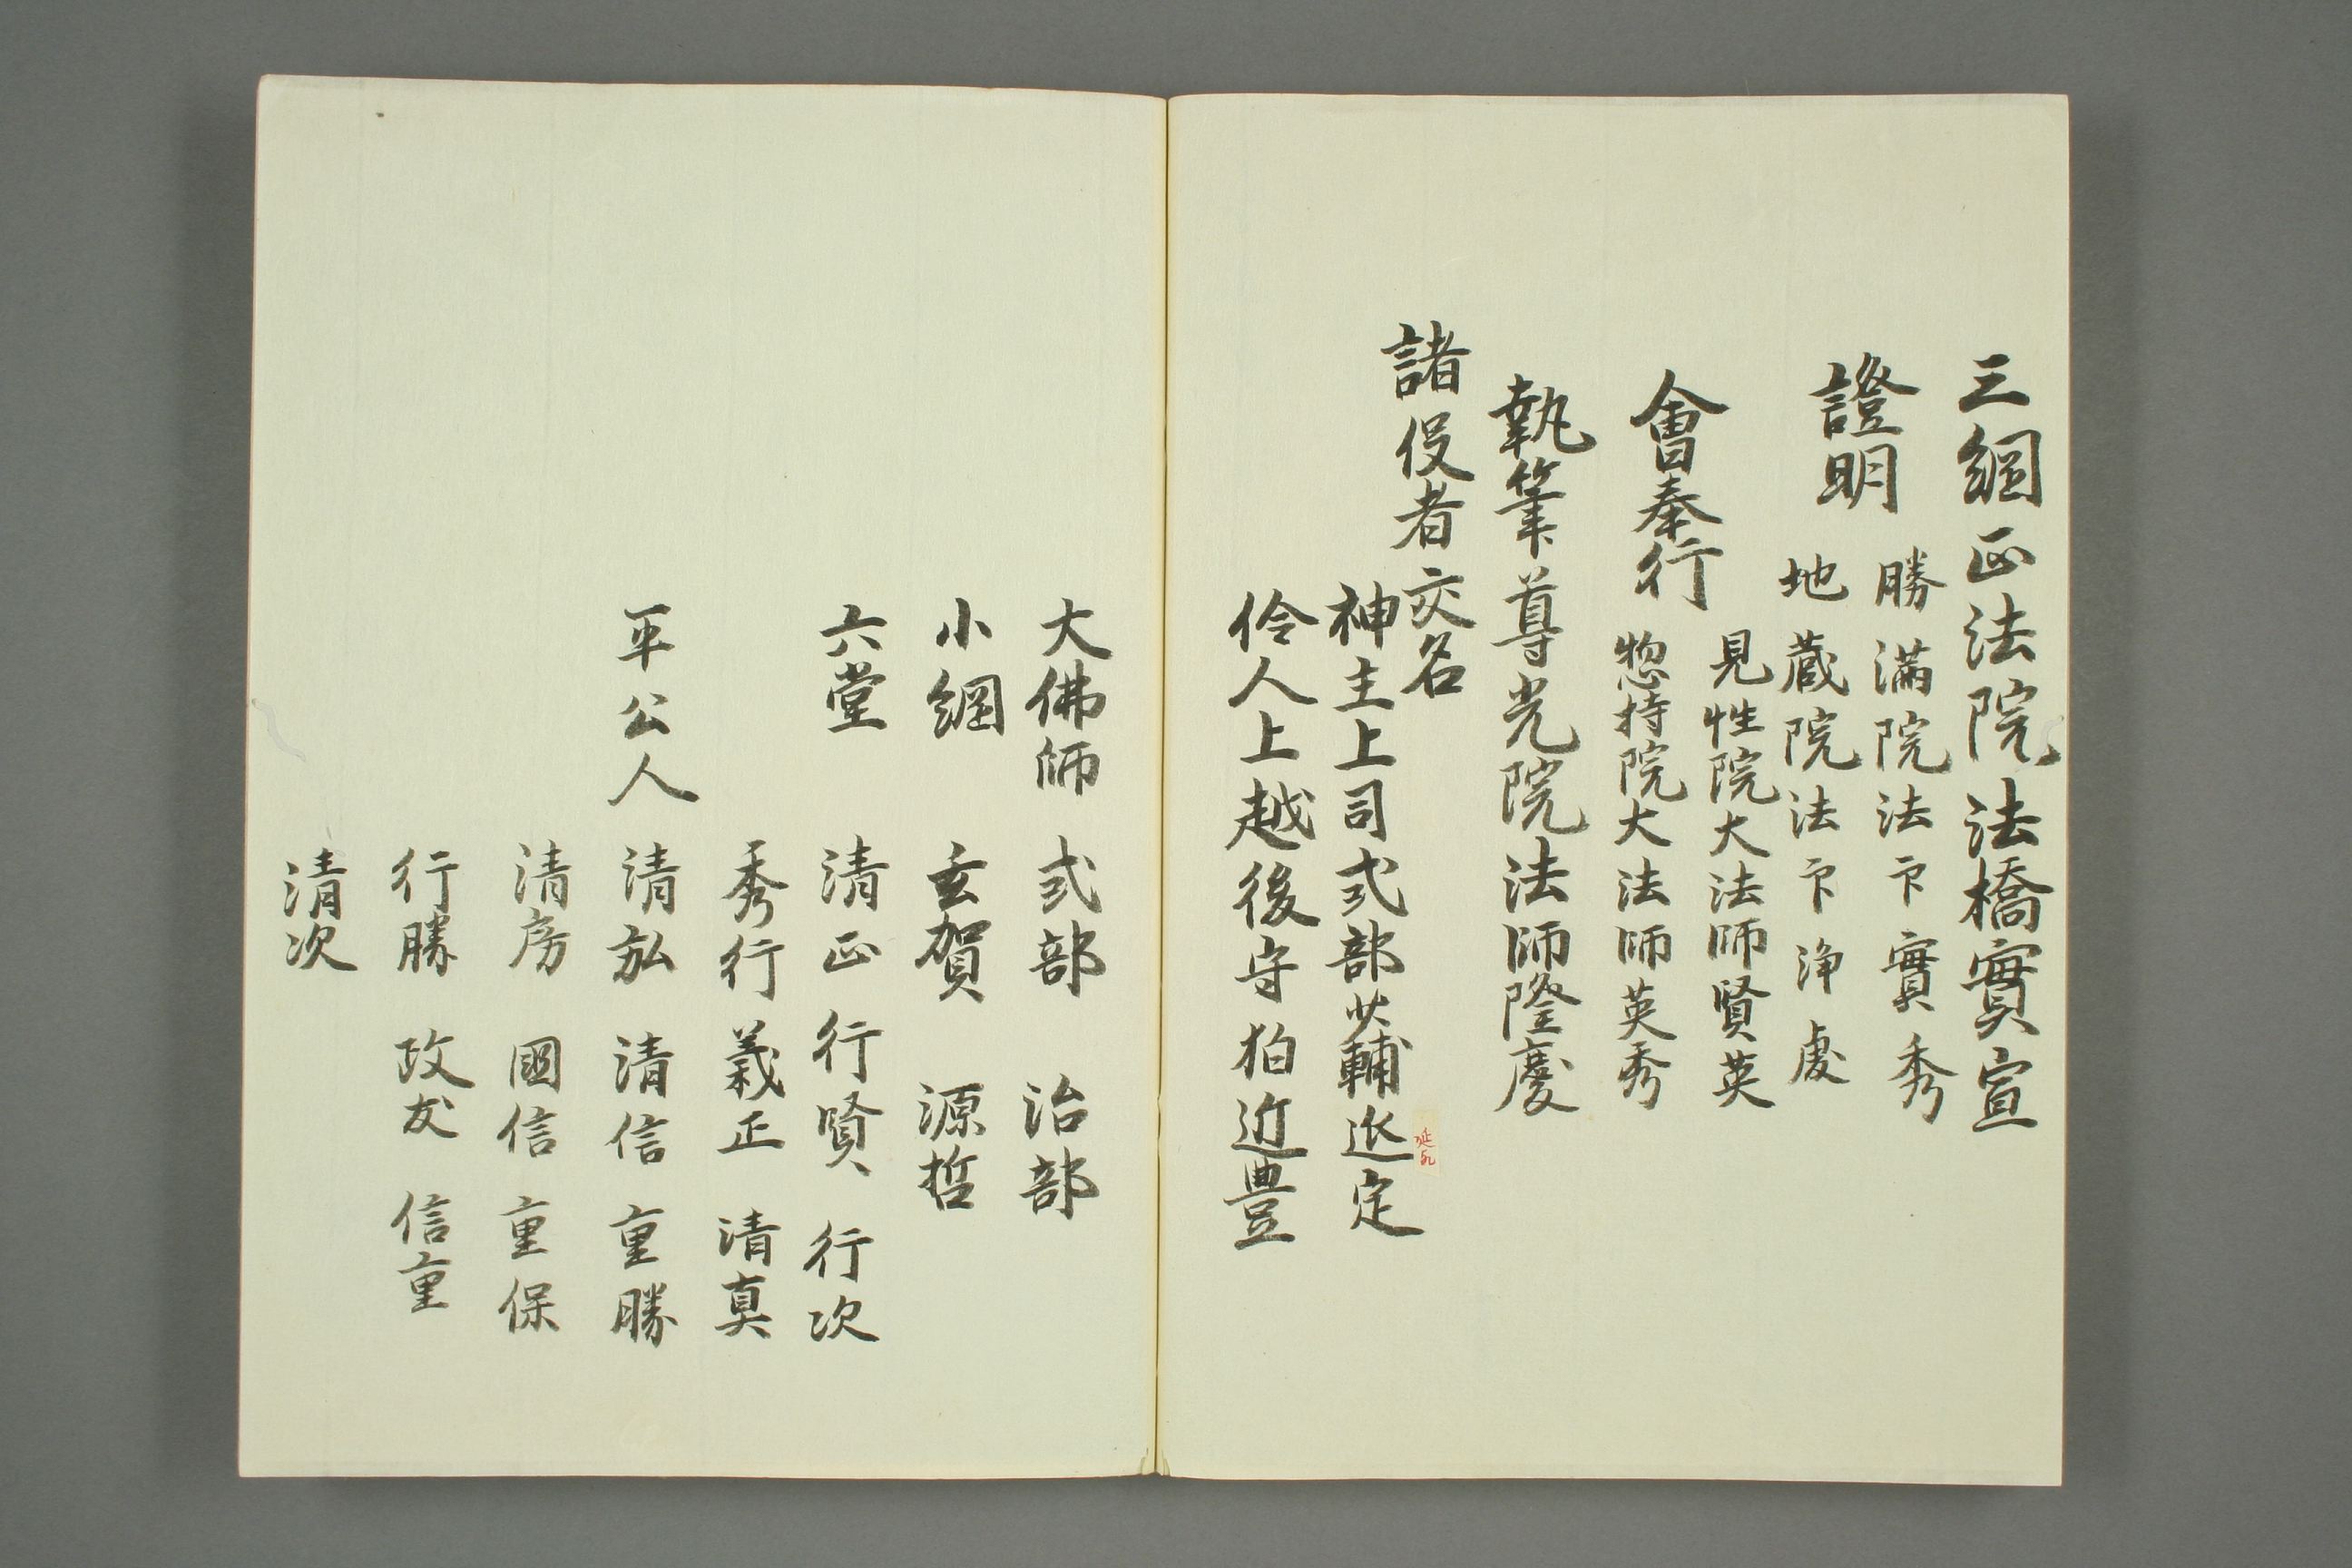 三綱正法院法橋實宣
證明
勝満院法卞實秀
地蔵院法卞浄慶
會奉行
見性院大法師賢英
惣持院大法師英秀
執筆尊光院法師隆慶
諸役者交名
神主上司式部少輔延定
伶人上越後守狛近豊
大佛師 式部 治部
小綱 玄賀 源哲
六堂 清正 行賢 行次
秀行 義正 清真
平公人 清弘 清信 重勝
清房 國信 重保
行勝 政友 信重
清次